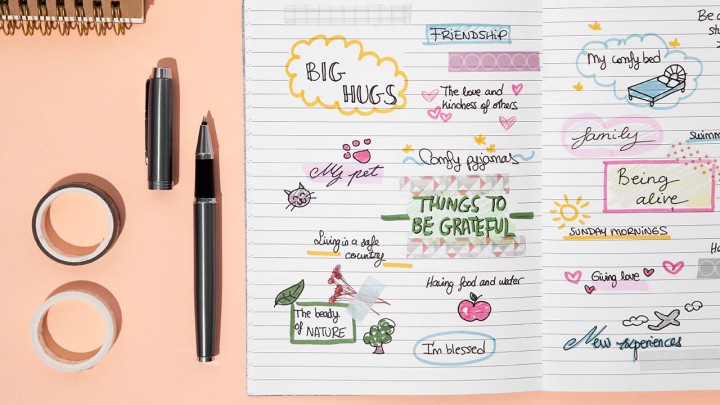 FRIENDSHIP
BIG
HUGS
The love and
kindness of others
My pet
Comfy pyjamas
THINGS TO
BE GRATEFUL
Living in a safe
country
Having food and water
The beauty
of NATURE
I'm blessed
Be
My comfy bed
family
Being
alive
SUNDAY MORNINGS
Giving love
New experiences